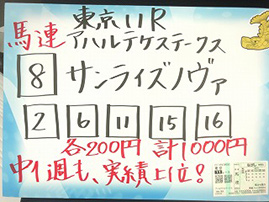 東京11R
馬連 アハルテケステークス
8 サンライズノヴァ
2 6 11 15 16
各200円 計1000円
中1週も、実績上位!